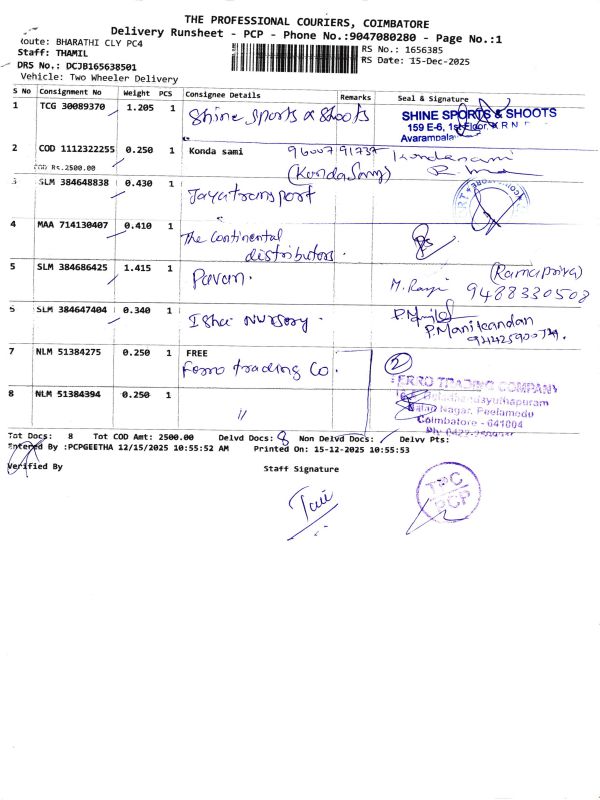 THE PROFESSIONAL COURIERS, COIMBATORE
Delivery Runsheet - PCP - Phone No.:9047080280 - Page No.:1
oute: BHARATHI CLY PC4
RS No.: 1656385
Staff: THAMIL
RS Date: 15-Dec-2025
DRS No.: DCJB165638501
Vehicle: Two Wheeler Delivery
S No Consignment No Weight PCS Consignee Details Remarks Seal & Signature
1 TCG 30089370 1.205 1 Shine Sports & Shoots
SHINE SPORTS & SHOOTS
159 E-6, 1st Floor, K R N
Avarampala
2 COD 1112322255 0.250 1 Konda sami 9600791737
COD Rs.2500.00 (KondaSamy)
3 SLM 384648838 0.430 1 Jayatransport
4 MAA 714130407 0.410 1 The Continental
distributors.
5 SLM 384686425 1.415 1 Pavan. (Ramapriya)
9488330508
6 SLM 384647404 0.340 1 Isha Nursery.
P.Manikandan
7 NLM 51384275 0.250 1 FREE
Ferro trading Co. 2
FERRO TRADING COMPANY
8 NLM 51384394 0.250 1 "
Nagar, Peelamedu
Coimbatore - 641004
Tot Docs: 8 Tot COD Amt: 2500.00 Delvd Docs: 8 Non Delvd Docs: Delvv Pts:
Entered By :PCPGEETHA 12/15/2025 10:55:52 AM Printed On: 15-12-2025 10:55:53
Verified By Staff Signature
TPC
PCP